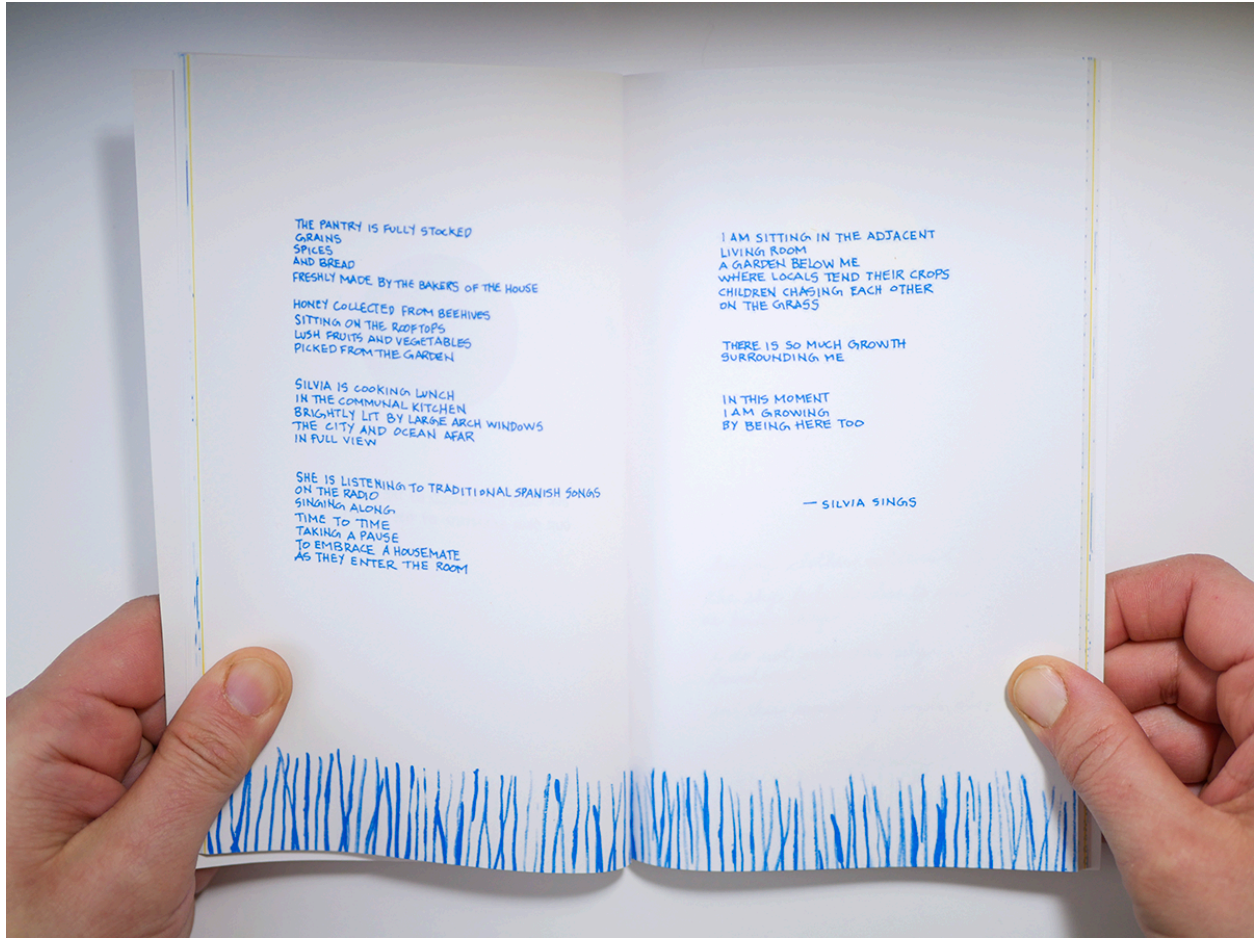 THE PANTRY IS FULLY STOCKED
GRAINS
SPICES
AND BREAD
FRESHLY MADE BY THE BAKERS OF THE HOUSE
HONEY COLLECTED FROM BEEHIVES
SITTING ON THE ROOFTOPS
LUSH FRUITS AND VEGETABLES
PICKED FROM THE GARDEN
SILVIA IS COOKING LUNCH
IN THE COMMUNAL KITCHEN
BRIGHTLY LIT BY LARGE ARCH WINDOWS
THE CITY AND OCEAN AFAR
IN FULL VIEW
SHE IS LISTENING TO TRADITIONAL SPANISH SONGS
ON THE RADIO
SINGING ALONG
TIME TO TIME
TAKING A PAUSE
TO EMBRACE A HOUSEMATE
AS THEY ENTER THE ROOM
I AM SITTING IN THE ADJACENT
LIVING ROOM
A GARDEN BELOW ME
WHERE LOCALS TEND THEIR CROPS
CHILDREN CHASING EACH OTHER
ON THE GRASS
THERE IS SO MUCH GROWTH
SURROUNDING ME
IN THIS MOMENT
I AM GROWING
BY BEING HERE TOO
— SILVIA SINGS